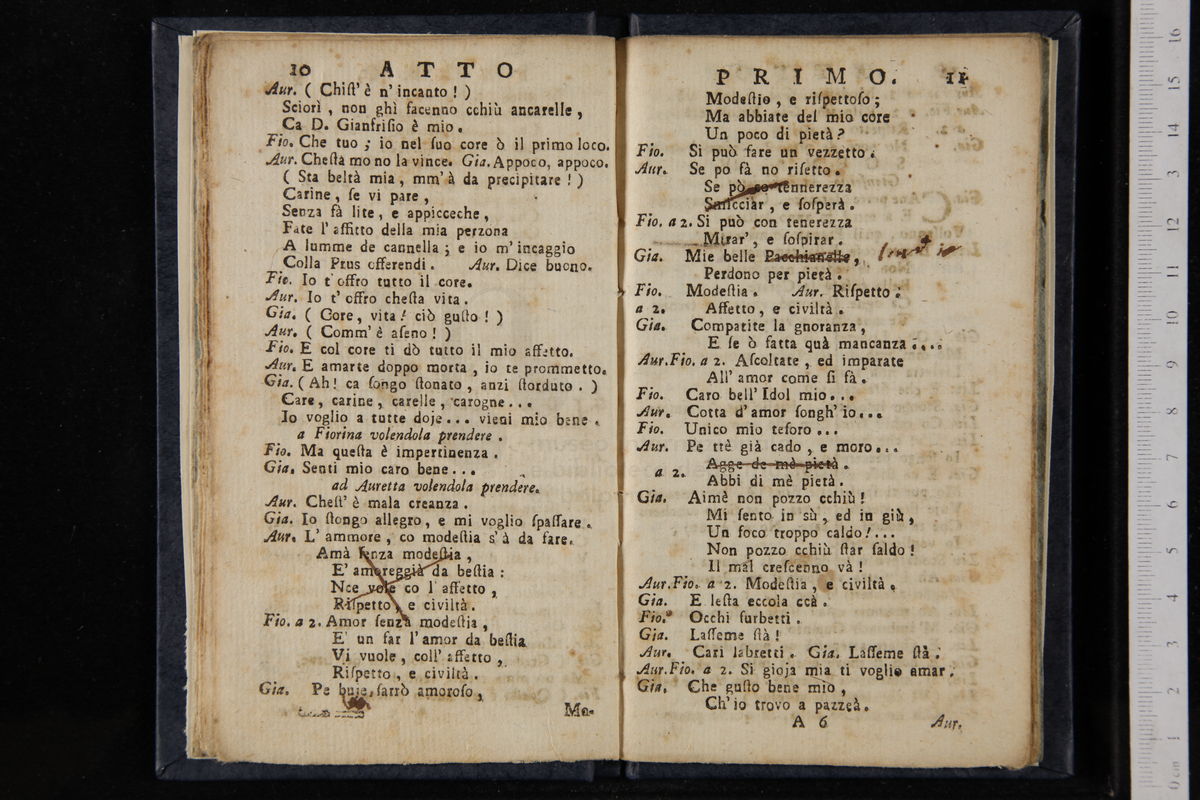 10 ATTO
Aur. ( Chiſt' è n' incanto ! )
Sciorì , non ghì facenno cchiù ancarelle ,
Ca D. Gianfriſio è mio .
Fio. Che tuo ; io nel ſuo core ò il primo loco.
Aur. Cheſta mo no la vince. Gia. Appoco, appoco.
( Sta beltà mia , mm' à da precipitare ! )
Carine , ſe vi pare ,
Senza fà lite , e appicceche ,
Fate l' affitto della mia perzona
A lumme de cannella ; e io m' incaggio
Colla Prus offerendi . Aur. Dice buono.
Fio. Io t' offro tutto il core.
Aur. Io t' offro cheſta vita .
Gia. ( Core, vita! ciò guſto ! )
Aur. ( Comm' è aſeno ! )
Fio. E col core ti dò tutto il mio affetto.
Aur. E amarte doppo morta , io te prommetto.
Gia. ( Ah! ca ſongo ſtonato , anzi ſtorduto . )
Care , carine , carelle , carogne . . .
Io voglio a tutte doje . . . vieni mio bene .
a Fiorina volendola prendere .
Fio. Ma queſta è impertinenza .
Gia. Senti mio caro bene . . .
ad Auretta volendola prendere.
Aur. Cheſt' è mala creanza .
Gia. Io ſtongo allegro , e mi voglio ſpaſſare .
Aur. L' ammore , co modeſtia s' à da fare.
Amà ſenza modeſtia ,
E' amoreggià da beſtia :
Nce vole co l' affetto ,
Riſpetto , e civiltà .
Fio. a 2. Amor ſenza modeſtia ,
E' un far l' amor da beſtia
Vi vuole , coll' affetto ,
Riſpetto , e civiltà .
Gia. Pe buje ſarrò amoroſo ,
Mo-
PRIMO. 11
Modeſtio , e riſpettoſo ;
Ma abbiate del mio core
Un poco di pietà?
Fio. Si può fare un vezzetto .
Aur. Se po fà no riſetto .
Se pò co tennerezza
Smicciar , e ſoſperà .
Fio. a 2. Si può con tenerezza
Mirar' , e ſoſpirar .
Gia. Mie belle Pacchianelle ,
Perdono per pietà .
Fio. Modeſtia . Aur. Riſpetto :
a 2. Affetto , e civiltà .
Gia. Compatite la gnoranza ,
E ſe ò fatta quà mancanza . . . .
Aur.Fio. a 2. Aſcoltate , ed imparate
All' amor come ſi fà .
Fio. Caro bell' Idol mio . . .
Aur. Cotta d' amor ſongh' io . . .
Fio. Unico mio teſoro . . .
Aur. Pe ttè già cado , e moro . . .
Agge de mè pietà .
a 2. Abbi di mè pietà .
Gia. Aimè non pozzo cchiù !
Mi ſento in sù , ed in giù ,
Un foco troppo caldo ! . . .
Non pozzo cchiù ſtar ſaldo !
Il mal creſcenno và !
Aur.Fio. a 2. Modeſtia , e civiltà .
Gia. E leſta eccola ccà .
Fio. Occhi furbetti .
Gia. Laſſeme ſtà !
Aur. Cari labretti . Gia. Laſſeme ſtà .
Aur.Fio. a 2. Si gioja mia ti voglio amar .
Gia. Che guſto bene mio ,
Ch' io trovo a pazzeà .
A 6 Aur.